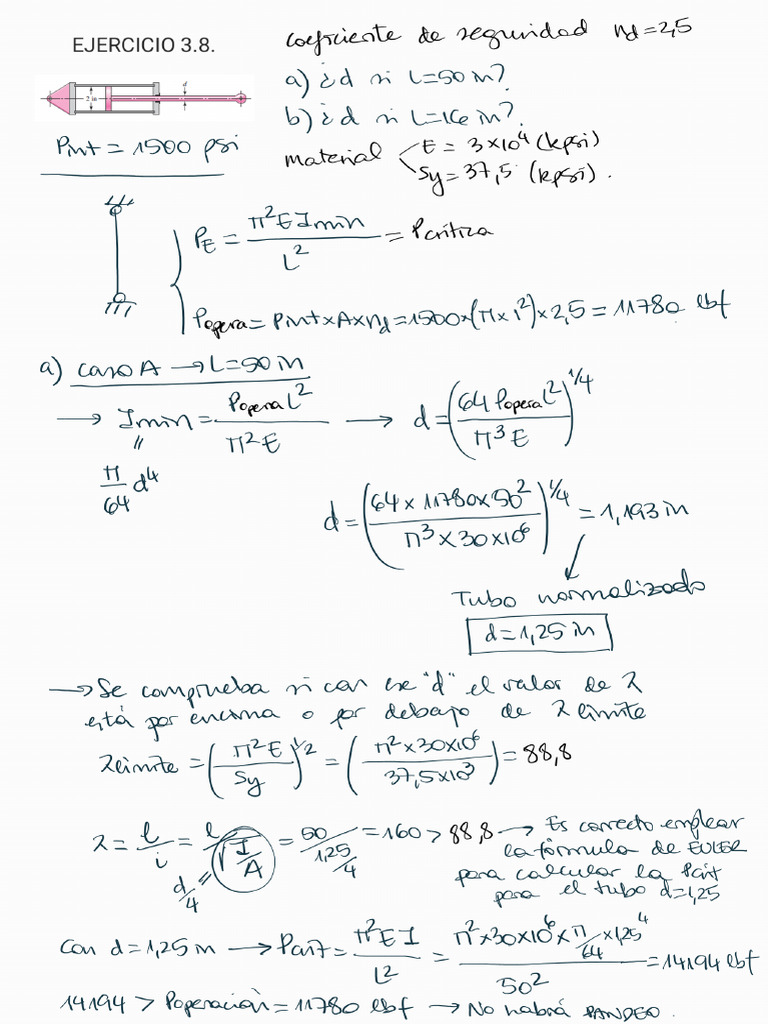 EJERCICIO 3.8.
coeficiente de seguridad nd = 2,5
a) ¿d si L=50 in?
b) ¿d si L=16 in?
2 in
d
Pint = 1500 psi
material E = 3x10⁴ (kpsi)
Sy = 37,5 (kpsi).
P_E = π²EImin / L² = Pcrítica
Popera = Pint x A x nd = 1500x(π x 1²) x 2,5 = 11780 lbf
a) caso A → L=50 in
→ Imin = Popera L² / π²E → d = (64 Popera L² / π³ E)^1/4
"
π/64 d⁴
d = (64 x 11780 x 50² / π³ x 30x10⁶)^1/4 = 1,193 in
Tubo normalizado
d = 1,25 in
→ Se comprueba si con ese "d" el valor de λ
está por encima o por debajo de λ límite
λlimite = (π²E / Sy)^1/2 = (π² x 30x10⁶ / 37,5x10³) = 88,8
λ = l/i = l/√(I/A) = 50/(1,25/4) = 160 > 88,8 → Es correcto emplear
la fórmula de EULER
para calcular la Pcrit
para el tubo d=1,25
d/4 =
Con d=1,25 in → Pcrit = π²EI / L² = π² x 30x10⁶ x π/64 x 1,25⁴ / 50² = 14194 lbf
14194 > Poperación = 11780 lbf → No habrá PANDEO.